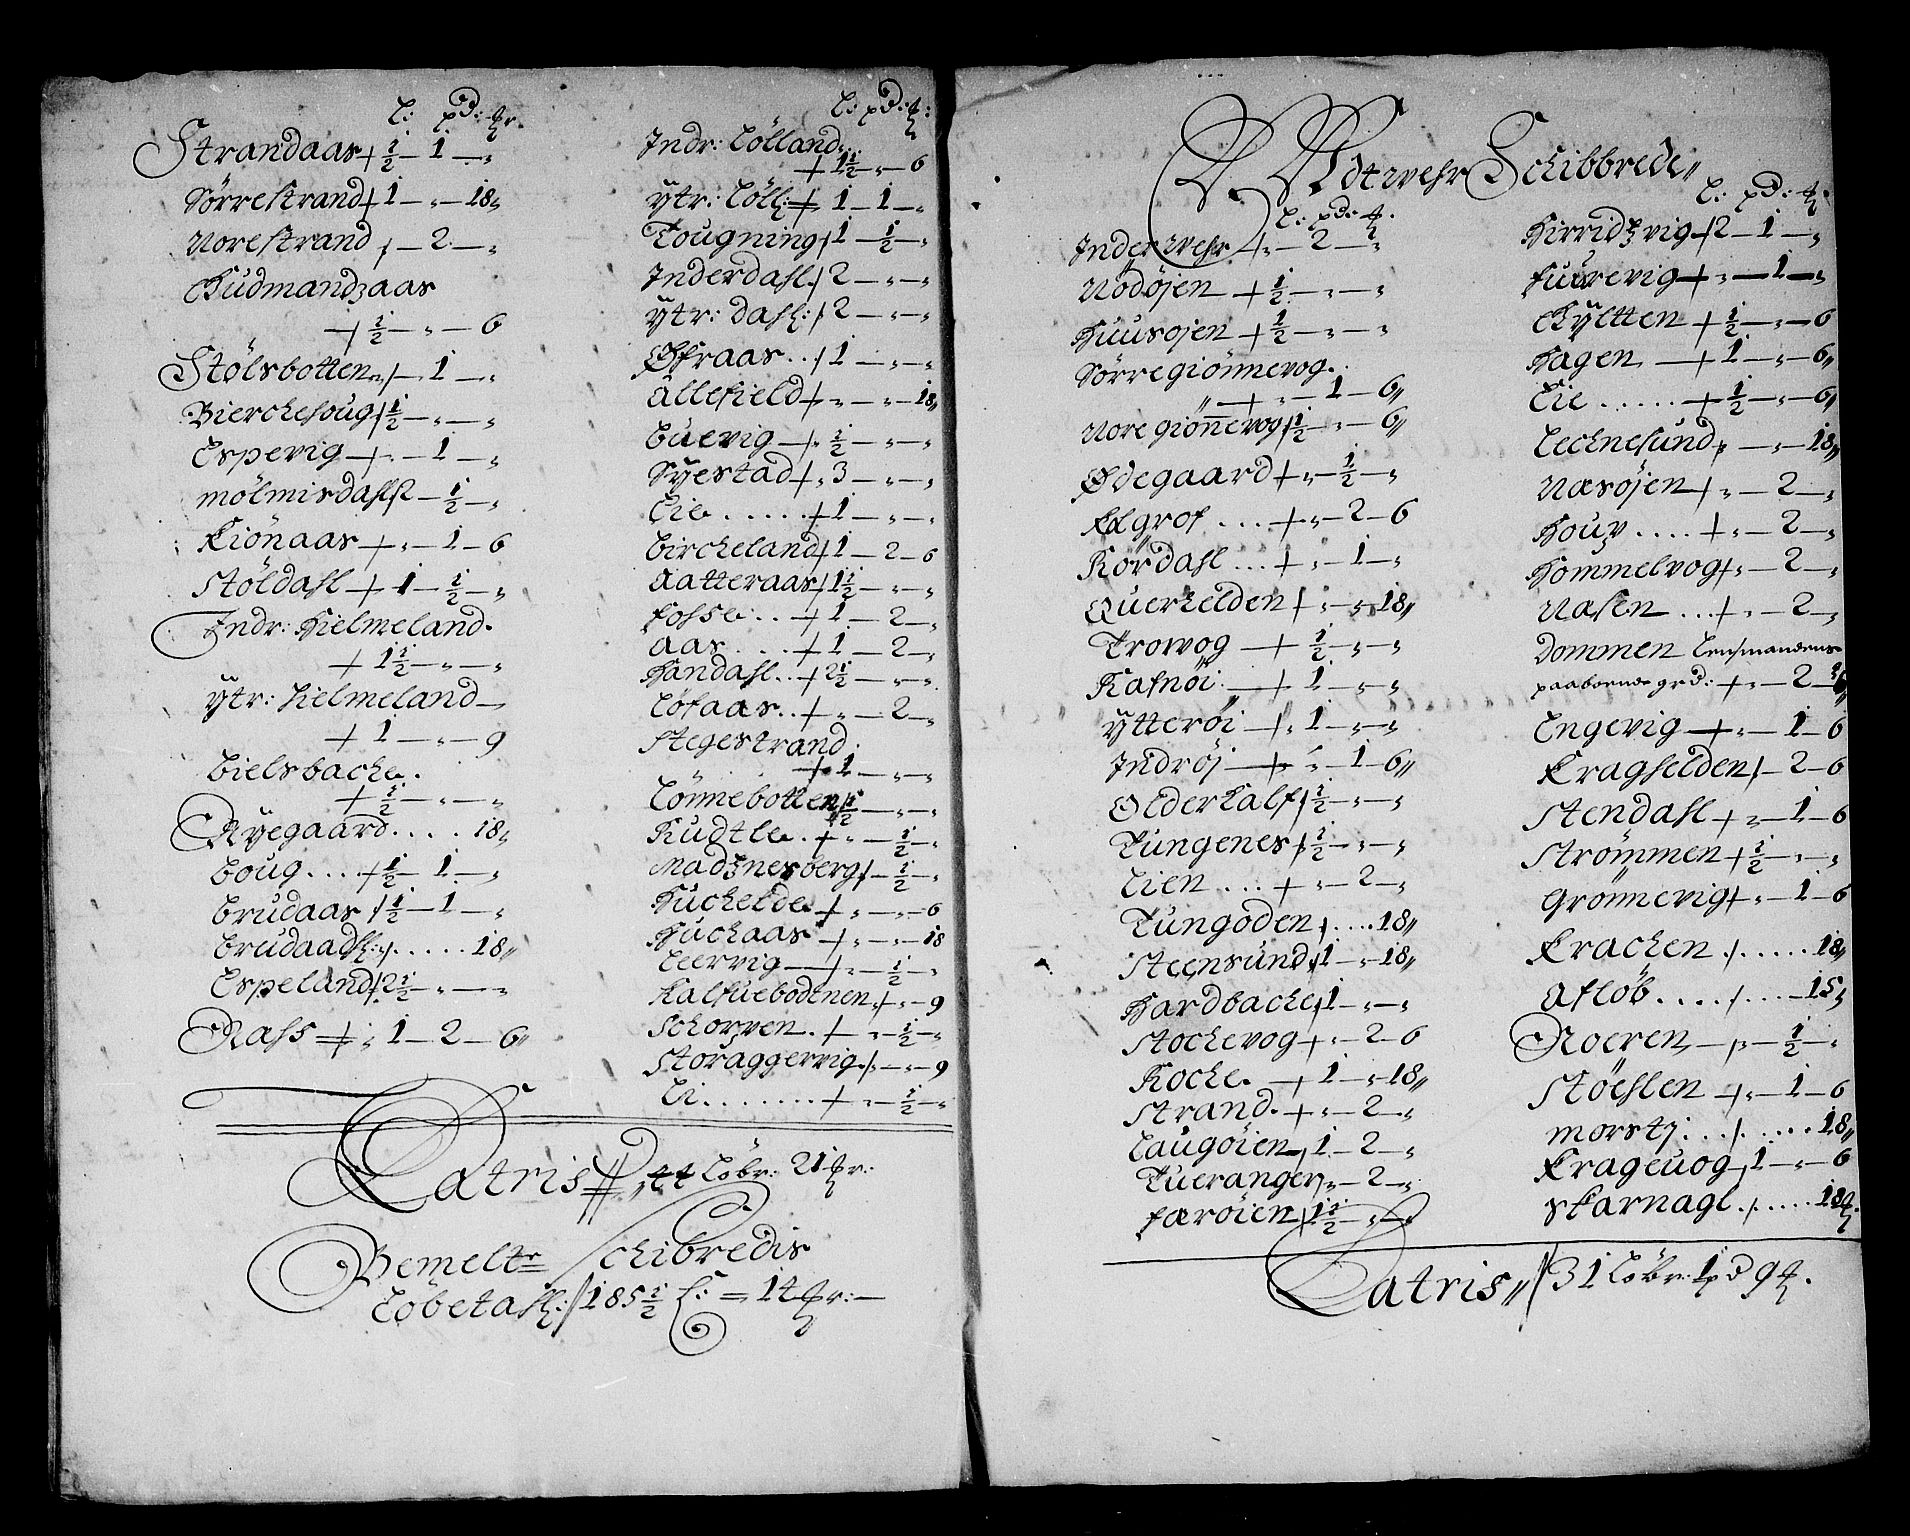 L: pd: fr.
Strandaas + ½ — 1 — „
Sörrestrand + 1 — „ — 18 „
Norestrand / — 2 — „
Gudmandzaas
+ ½ — „ — 6
Stölsbotten /— 1 — „
Bierchehoug / ½ — „ — „
Espevig — + „ — 1 — „
mölmisdahl / 2 — ½ — „
Kiönaas — + „ — 1 — 6
Stöldahl + 1 — ½ — „
Indr: Hielmeland.
+ 1½ — „ — „
Ytr: Hielmeland —
+ 1 — „ — 9
Bielsbache.
+ ½ — „ — „
Nyegaard . . . . 18 „
Houg . . . . + ½ — 1 — „
Brudaas / ½ — 1 — „
Brudaadhl: / . . . . . 18 „
Espeland / 2½ — „ — „
Rafs + „ 1 — 2 — 6 „
L: pd: fr:
Indr: Lölland
+ 1½ — „ — 6
Ytr: Löll: + 1 — 1 — „
Tougning / 1 — ½ — „
Inderdahl / 2 — „ — „
Ytr: dahl: / 2 — „ — „
Øfraas . . / 1 — „ — „
Allefield + „ — „ — 18 „
Buevig — / „ ½ — „ — „
Syestad + „ 3 — „ — „
Lie . . . . . + 1 — „ — „
Bircheland / 1 — 2 — 6
Aatteraas / 1½ — „ — „
Fosse . . — + 1 — 2 — „
Aas . . . . + 1 — 2 — „
Handahl . . + 2½ — „ — „
Löfaas . . + „ — 2 — „
Stegestrand.
+ 1 — „ — „
Lönnebotten / ½ — „ — „
Kudtle . . + „ — ½ — „
Madznesberg / — ½ — „
Huchelde + „ — „ — 6
Huchaas + — „ — 18
Leervig — + „ — ½ — „
Kalfuebodtnen + „ — 9
Schorpen . + — „ — ½ — „
Storaggervig / „ — „ — 9
Li . . . . . . . + „ — ½ — „
Latris // 44 Löbr: 21 fr:
Bemelte Schibredis
Löbetahl: / 185½ L: = 14 fr: —
Udtwehr Schibbrede „
L: pd: fr.
Inderwehr / „ — 2 — „
Nödöjen + ½ — „ — „
Huusöjen + ½ — „ — „
Sörregiönnevog.
„ — + „ — 1 — 6 „
Nore giönnevog / ½ — „ — 6 „
Ødegaard + „ — ½ — „
Elgrof . . . . + „ — 2 — 6
Kördahl . . . + „ — 1 — „
Querhelden / „ — „ — 18 „
Trowog — + ½ — „ — „
Kafnöi „ — + 1 — „ — „
Ytteröi — + „ 1 — „ — „
Indröj — + „ — 1 — 6 „
Olderkalf / ½ — „ — „
Tungenes / ½ — „ — „
Lien . . . + „ — 2 — „
Tungoden / . . . . 18 „
Steensund / 1 — „ — 18 „
Hardbache / 1 — „ — „
Stochevog + „ — 2 — 6
Koche. — + 1 — „ — 18 „
Strand. — + „ — 2 — „
Laugöien / 1 — 2 — „
Tueranger / „ — 2 — „
Færöien / 1½ — „ — „
L: pd: fr.
Hirridzvig / 2 — 1 — „
Fuurevig + „ — 1 — „
Gyltten + ½ — „ — 6
Hagen — + 1 — „ — 6 „
Lie . . . . . . + ½ — „ — 6 „
Lechnesund / — „ — 18 „
Næsöjen + „ — 2 — „
Houp . . . . + „ — 2 — „
Hommelvog + „ — 2 — „
Næsen . . . + „ — 2 — „
Dommen Lensmandens
paaboende grd: + „ — 2
Engevig — + „ — 1 — 6
Kraghelden / — 2 — 6
Stendahl + „ — 1 — 6
Strömmen + ½ — „ — „
Grönnevig + „ — 1 — 6
Krachen . / . . . . . 18 „
Aflöb . . . . / . . . . — 15 „
Noeren „ — / „ — ½ — „
Stöehlen — + „ — 1 — 6
morstj . . . / . . . . . 18 „
Krageuog / 1 — „ — 6
Skarnagl . / . . . . . 18 fr.
Latris „ / 31 Löbr: 1 pd 9 fr.